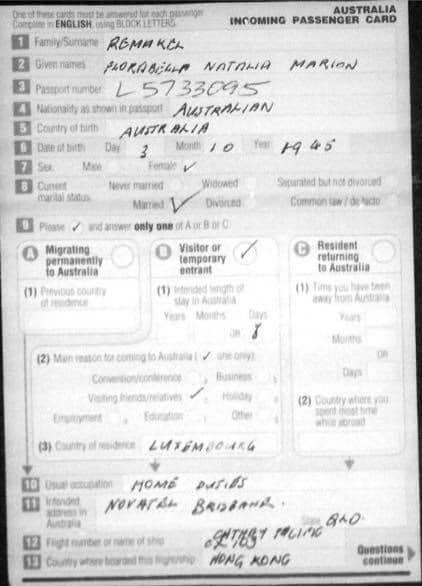 One of these cards must be answered for each passenger
AUSTRALIA
Complete in ENGLISH, using BLOCK LETTERS.
INCOMING PASSENGER CARD
1 Family/Surname REMAKEL
2 Given names FLORABELLA NATALIA MARION
3 Passport number L5733095
4 Nationality as shown in passport AUSTRALIAN
5 Country of birth AUSTRALIA
6 Date of birth Day 3 Month 10 Year 1945
7 Sex Male Female ✓
8 Current marital status
Never married Widowed Separated but not divorced
Married ✓ Divorced Common law / de facto
9 Please ✓ and answer only one of A or B or C
A Migrating permanently to Australia
(1) Previous country of residence
B Visitor or temporary entrant ✓
(1) Intended length of stay in Australia
Years Months Days
OR 8
(2) Main reason for coming to Australia (✓ one only)
Convention/conference Business
Visiting friends/relatives ✓ Holiday
Employment Education Other
(3) Country of residence LUXEMBOURG
C Resident returning to Australia
(1) Time you have been away from Australia
Years
Months
OR
Days
(2) Country where you spent most time while abroad
10 Usual occupation HOME DUTIES
11 Intended address in Australia NOVATEL BRISBANE.
State QLD.
12 Flight number or name of ship CATHAY PACIFIC
CX 103
13 Country where boarded this flight/ship HONG KONG
Questions continue